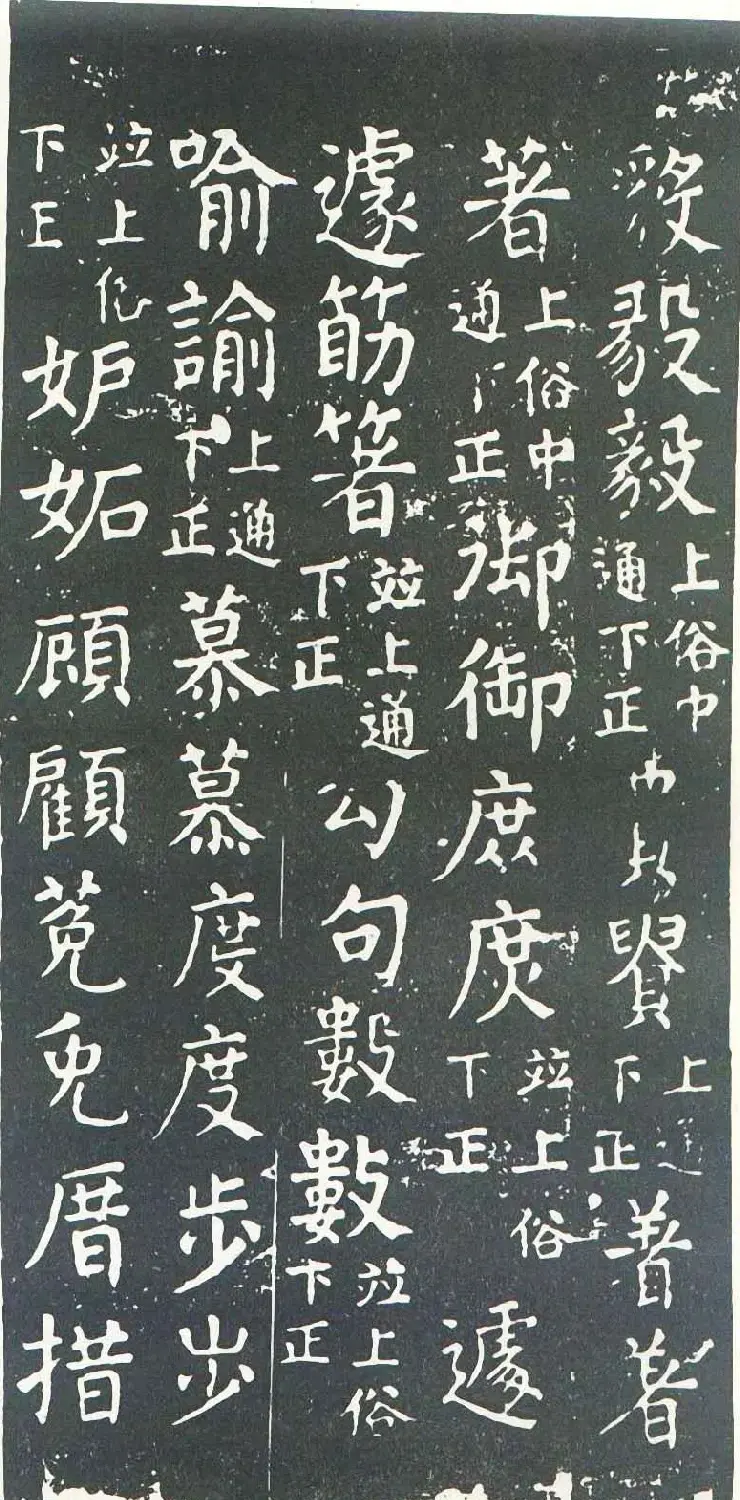 毅毅上俗中通下正貴上通下正著著
著上俗中通下正御御庶庶並上俗下正遽
遽筯箸並上通下正勾句數數並上俗下正
喻諭上通下正慕慕度度步步
並上俗下正妒妬頋顧莵兔厝措